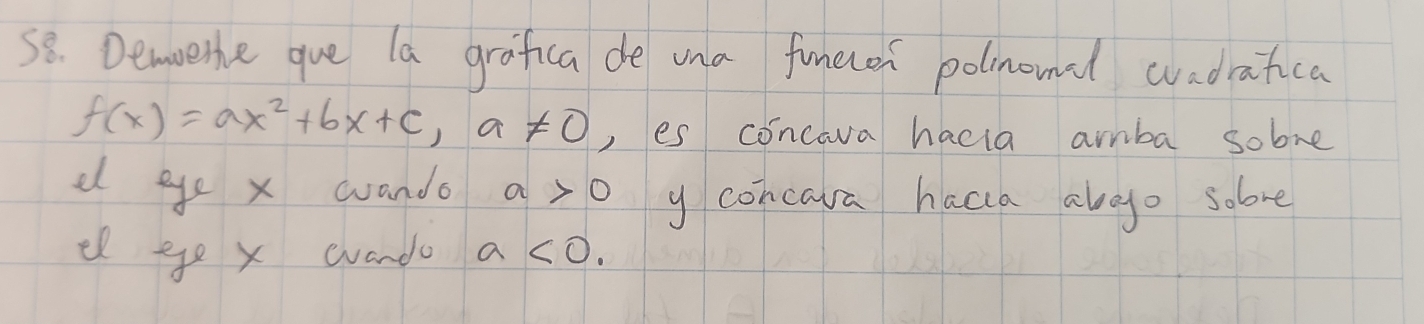 58. Demuestre que la gráfica de una función polinomial cuadrática
f(x) = ax² + bx + c, a ≠ 0, es cóncava hacia arriba sobre
el eje x cuando a > 0 y cóncava hacia abajo sobre
el eje x cuando a < 0.